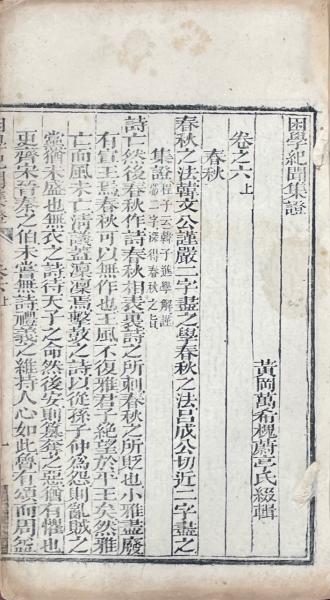 困學紀聞集證
黃岡萬希槐蔚亭氏綴輯
卷之六上
春秋
春秋之法韓文公謹嚴二字盡之學春秋之法呂成公切近二字盡之
集證程子云韓子進學解謹嚴二字深得春秋之旨
詩亡然後春秋作詩春秋相表裏詩之所刺春秋之所貶也小雅盡廢
有宣王焉春秋可以無作也王風不復雅君子絕望於平王矣然雅
亡而風未亡清議蓋凜凜焉擊鼓之詩以從孫子仲為怨則亂賊之
黨猶未盛也無衣之詩待天子之命然後安則篡奪之惡猶有懼也
更齊宋晉秦之伯未嘗無詩禮義之維持人心如此魯有頌而周益